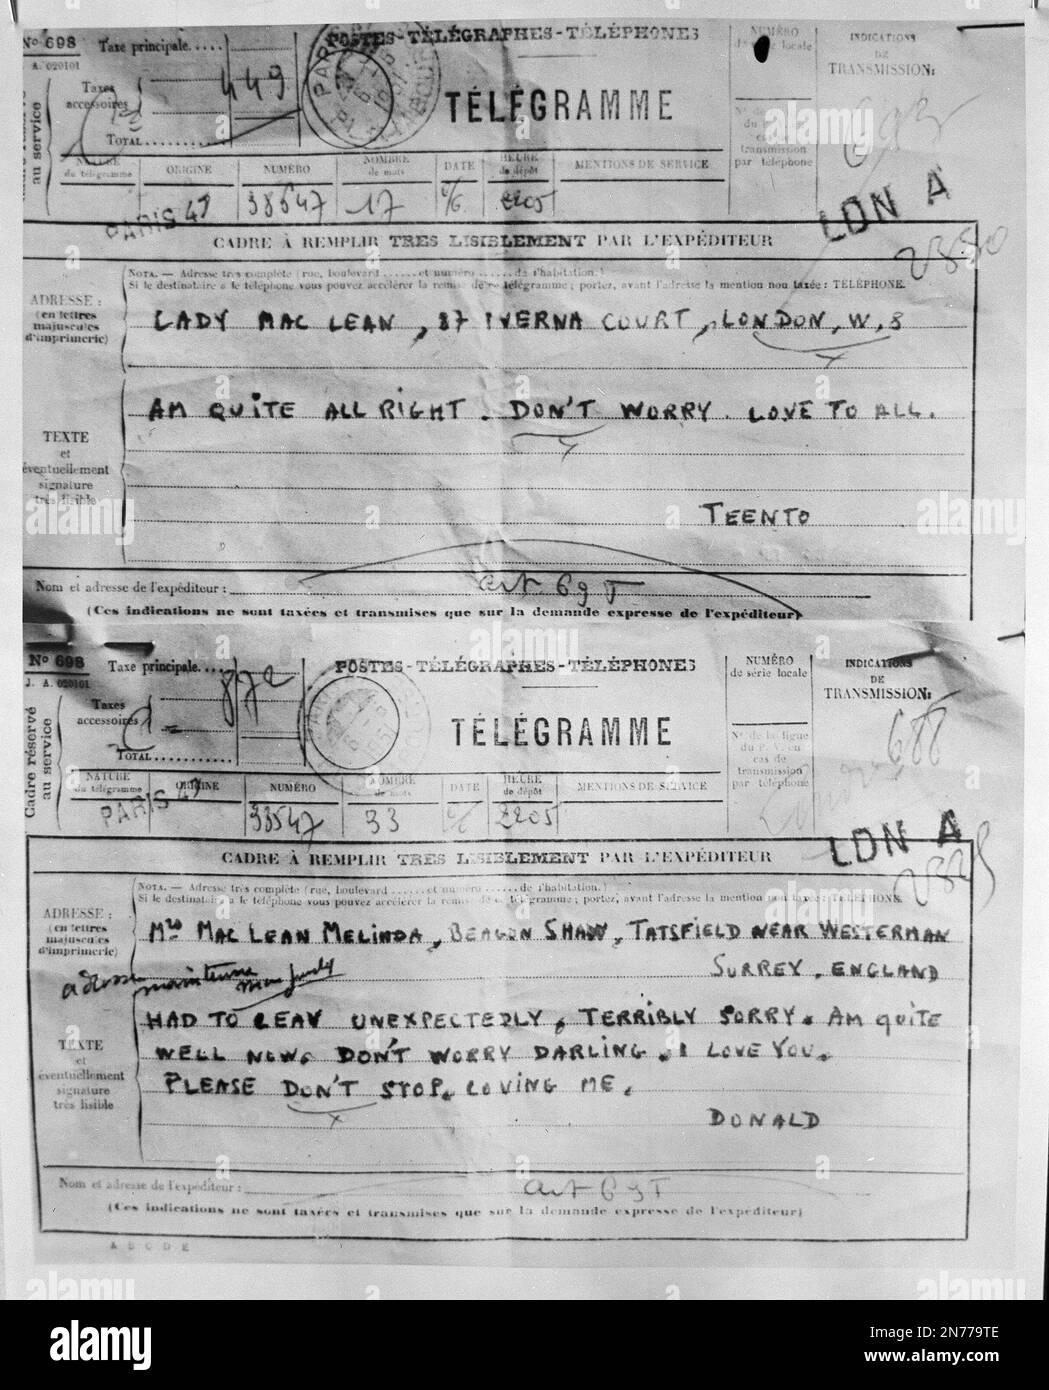 Nº 698
Taxe principale.....
POSTES-TÉLÉGRAPHES-TÉLÉPHONES
NUMÉRO
INDICATIONS
DE
TRANSMISSION:
J. A. 020101
Taxes
accessoires
449
TÉLÉGRAMME
TOTAL..........
au service
NATURE
du télégramme
ORIGINE
NUMÉRO
NOMBRE
de mots
DATE
HEURE
de dépôt
MENTIONS DE SERVICE
cas de
transmission
par téléphone
PARIS 47
38547
17
6/6
2205
LDN A
CADRE À REMPLIR TRES LISIBLEMENT PAR L'EXPÉDITEUR
NOTA. — Adresse très complète (rue, boulevard ...... et numéro ...... de l'habitation.)
Si le destinataire a le téléphone vous pouvez accélérer la remise de ce télégramme; portez, avant l'adresse la mention non taxée: TÉLÉPHONE.
ADRESSE:
(en lettres
majuscules
d'imprimerie)
LADY MAC LEAN, 87 IVERNA COURT, LONDON, W, 8
AM QUITE ALL RIGHT. DON'T WORRY. LOVE TO ALL.
TEXTE
et
éventuellement
signature
très lisible
TEENTO
Nom et adresse de l'expéditeur:
art 69 T
(Ces indications ne sont taxées et transmises que sur la demande expresse de l'expéditeur)
Nº 698
Taxe principale....
872
POSTES-TÉLÉGRAPHES-TÉLÉPHONES
NUMÉRO
de série locale
INDICATIONS
DE
TRANSMISSION:
J. A. 020101
Taxes
accessoires
688
TÉLÉGRAMME
Cadre réservé
au service
TOTAL..........
Nº de la ligne
du P. V. en
cas de
transmission
par téléphone
NATURE
du télégramme
ORIGINE
NUMÉRO
NOMBRE
de mots
DATE
HEURE
de dépôt
MENTIONS DE SERVICE
PARIS 47
38547
33
6/6
2205
LDN A
CADRE À REMPLIR TRES LISIBLEMENT PAR L'EXPÉDITEUR
NOTA. — Adresse très complète (rue, boulevard ...... et numéro ...... de l'habitation.)
Si le destinataire a le téléphone vous pouvez accélérer la remise de ce télégramme; portez, avant l'adresse la mention non taxée: TÉLÉPHONE.
ADRESSE:
(en lettres
majuscules
d'imprimerie)
MRS MAC LEAN MELINDA, BEACON SHAW, TATSFIELD NEAR WESTERMAN
SURREY. ENGLAND
HAD TO LEAV UNEXPECTEDLY, TERRIBLY SORRY. AM QUITE
WELL NOW. DON'T WORRY DARLING. I LOVE YOU.
PLEASE DON'T STOP. LOVING ME.
TEXTE
et
éventuellement
signature
très lisible
DONALD
Nom et adresse de l'expéditeur:
art 69 T
(Ces indications ne sont taxées et transmises que sur la demande expresse de l'expéditeur)
A B C D E
alamy
Image ID: 2N779TE
www.alamy.com